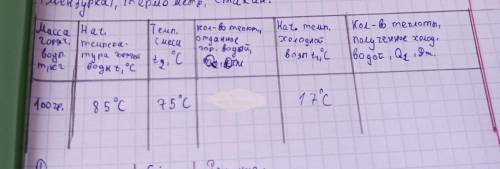 термометр, стакан.
Масса
горяч.
воды
m, кг
Нач.
темпера-
тура
воды t, °C
Темп.
смеси
t2, °C
кол-во теплот,
отданное
гор. водой,
Дж
Нач. темп.
холодной
воды t1, °C
Кол-во теплоты,
полученное холод.
водой, Q2, Дж.
100гр.
85°C
75°C
17°C